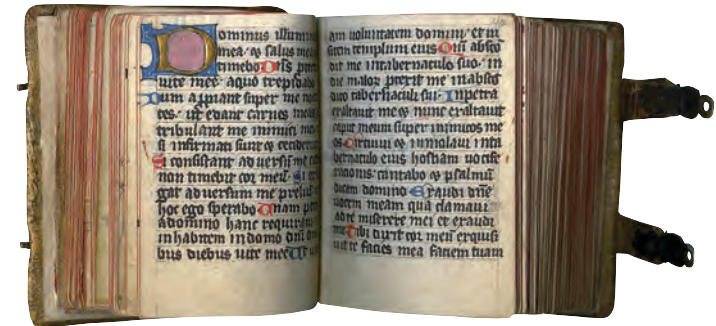 Dominus illumin
mea · & salus mea
timebo Dñs prot
uite mee · aquo trepidabo
Dum appiant super me noc
tes · ut edant carnes meas
tribulant me inimici mei
si infirmati sunt & cecider
Si consistant adversū me ca
non timebit cor meū Si ex
gat adversum me preliū
hoc ego sperabo Unam pet
adomino hanc requiram
inhabitem indomo dnī om
bus diebus uite mee Ut ui
am uoluntatem domini et ui
sitem templum eius Qm̄ absco
dit me intabernaculo suo · in
die malor protexit me inabsco
dito tabernaculi sui · Inpetra
exaltauit me & nunc exaltauit
caput meum super inimicos me
os Circuiui & inmolaui inta
bernaculo eius hostiam uocife
racionis · cantabo & psalmū
dicam domino Exaudi dn̄e
uocem meam quā clamaui
adte miserere mei et exaudi
me Tibi dixit cor meū exquisi
uit te facies mea faciem tuam